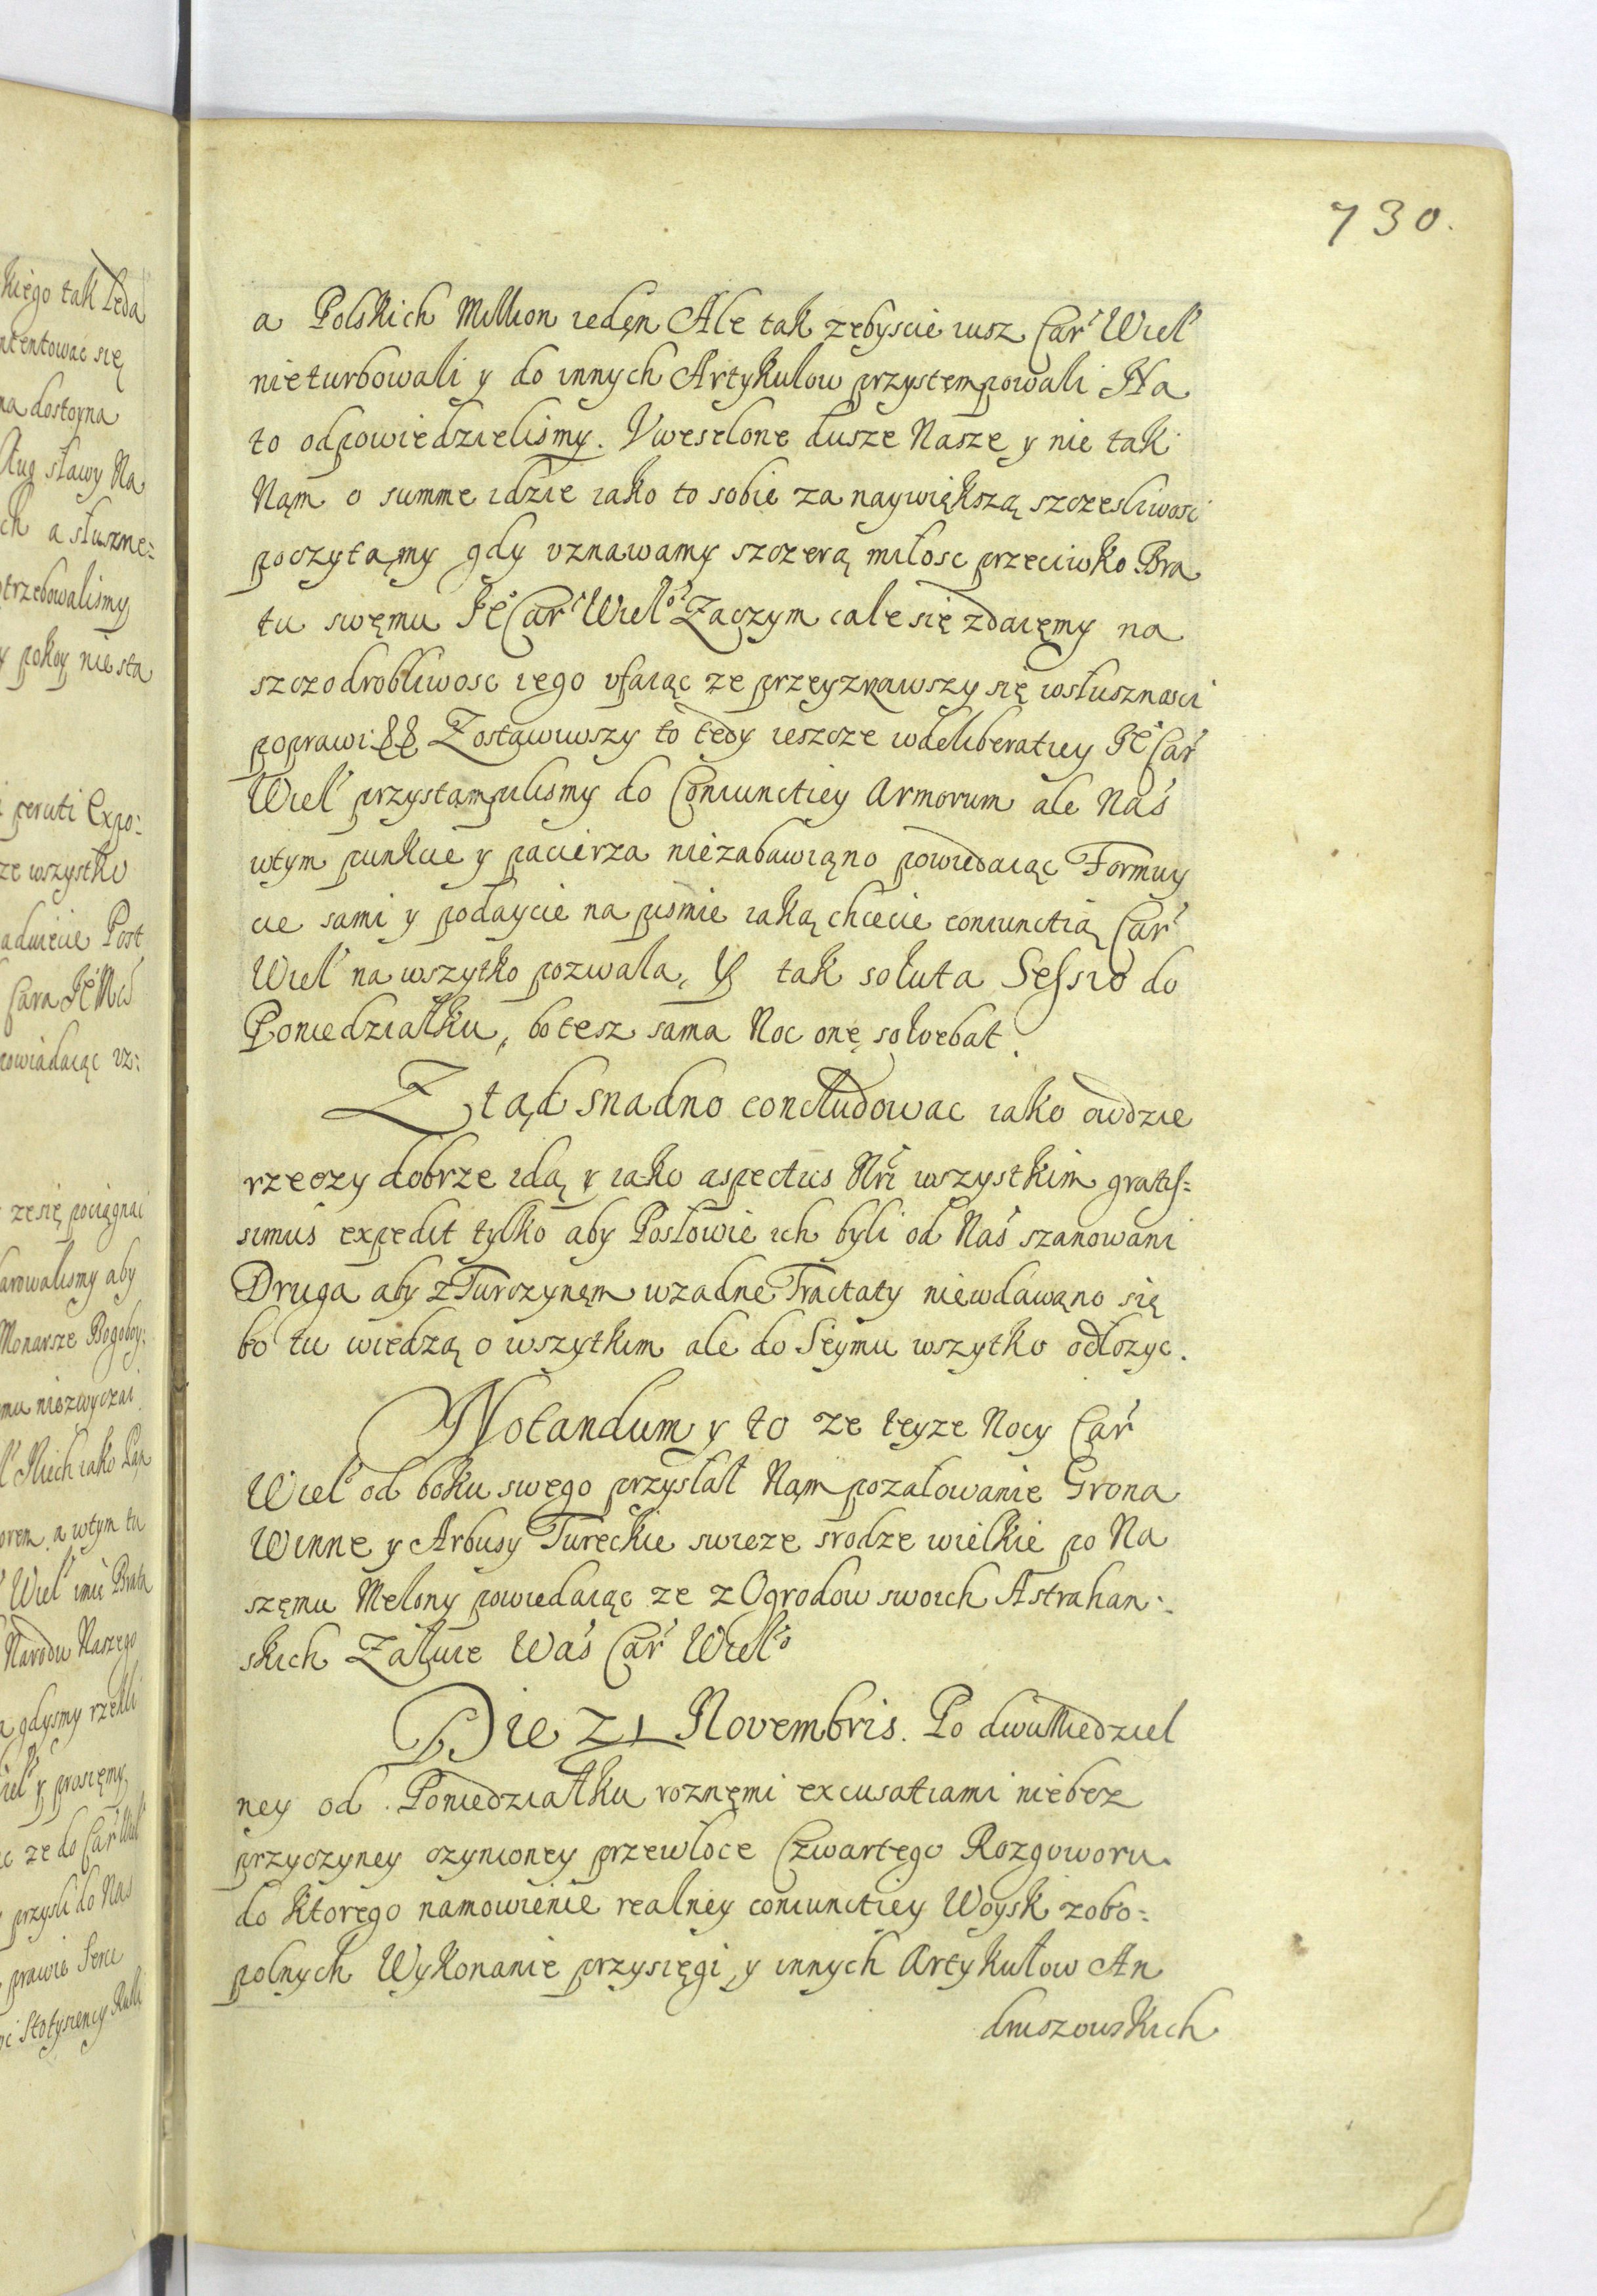 730.
a Polskich Million ieden Ale tak zebyscie iusz Car Wiel
nieturbowali y do innych Artykulow przystempowali Na
to odpowiedzielismy. Vweselone dusze Nasze y nie tak
Nąm o summe idzie iako to sobie za naywiększą szczesliwosc
poczytąmy gdy vznawamy szczerą miłosc przeciwko Bra
tu swęmu Je Car Wiel Zaczym cale się zdaięmy na
szczodrobliwosc iego vfaiąc ze przeyzrawszy się wsłusznosci
poprawi Zostawiwszy to tedy ieszcze wdeliberatiey Je Car
Wiel przystąmpilismy do Coniunctiey Armorum ale Nas
wtym punkcie y pacierza niezabawiąno powiedaiąc Formuy
cie sami y podaycie na pismie iaką chcecie coniunctią Car
Wiel na wszytko pozwala, Y tak soluta Sessio do
Poniedziałku, bo tesz sama Noc onę solvebat.
Ztąd snadno concludowac iako owdzie
rzeczy dobrze idą y iako aspectus Nri wszystkim gratis=
simus expedit tylko aby Posłowie ich byli od Nas szanowani
Druga aby z Turczynęm wzadne Tractaty niewdawąno się
bo tu wiedzą o wszytkim ale do Seymu wszytko odłozyc.
Notandum y to ze teyze Nocy Car
Wiel od boku swego przysłał Nąm pozałowanie Grona
Winne y Arbusy Tureckie swieze srodze wielkie po Na
szęmu Melony powiedaiąc ze z Ogrodow swoich Astrahan=
skich Załuie Was Car Wiel
Die 21 Novembris. Po dwuNiedziel
ney od Poniedziałku roznęmi excusatiami niebez
przyczyney czynioney przewłoce Czwartego Rozgoworu
do ktorego namowienie realney coniunctiey Woysk zobo=
polnych Wykonanie przysięgi y innych Artykułow An
druszowskich
kiego tak
ntentowac się
na dostoyna
Aug sławy Na
ch a słuszne=
otrzebowalismy
y pokoy niesta
peruti Expo=
ze wszystko
Post
Cara
powiadaiąc vz=
zesię pociągnac
arowalismy aby
Monarsze Bogoboy=
mu niezwyczai
Niech iako Pąn
orem a wtym tu
Wiel imie Brata
Narodu Naszego
a gdysmy rzekli
y prosięmy
ze do Car Wiel
przysli do Nas
prawie